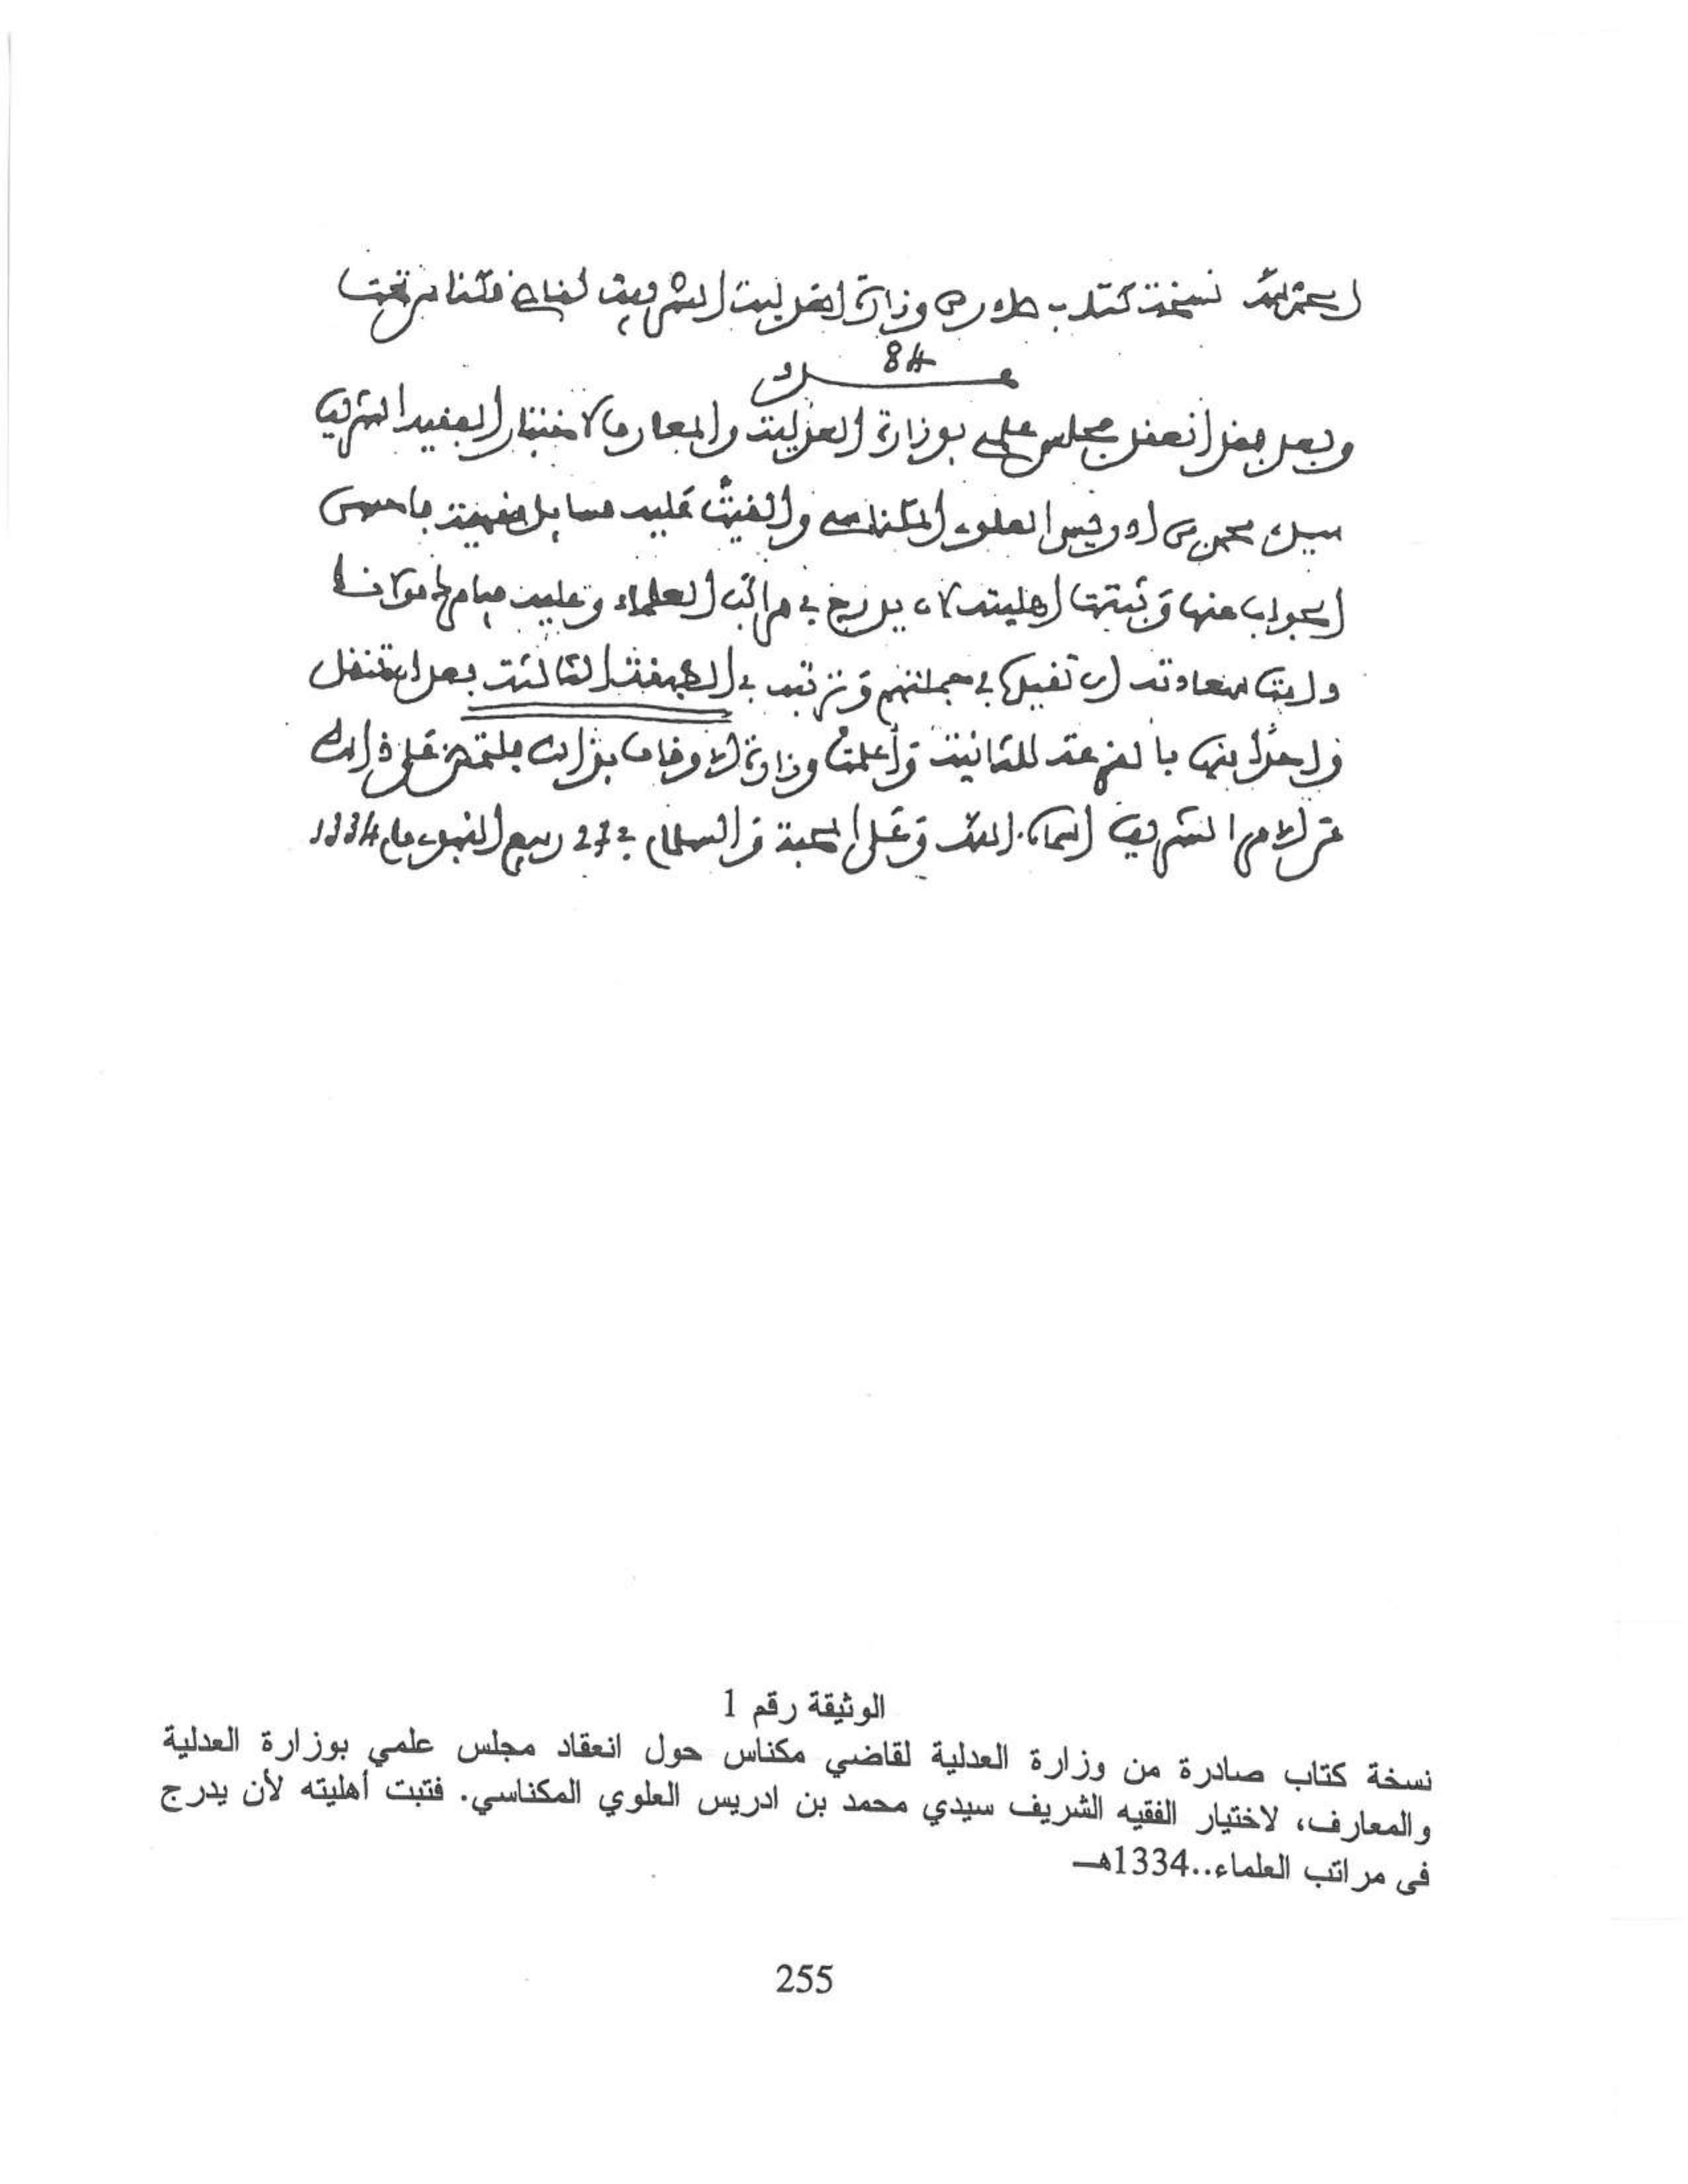 الحمد لله نسخة كتاب صادر من وزارة العدلية الشريفة لقاضي مكناس تحت
عــــدد
84
وبعد فقد انعقد مجلس علمي بوزارة العدلية والمعارف لاختبار الفقيه الشريف
سيدي محمد بن ادريس العلوي المكناسي والقيت عليه مسايل فقهية فاحسن
الجواب عنها وثبتت اهليته لان يدرج في مراتب العلماء وعليه
سعادته ان تقيد في جملتهم وترتبه في الطبقة الثالثة بعد ان تنقل
واحدا منها بالقرعة للثانية وأعلمت وزارة الاوقاف بذلك على ذلك
عن الامر الشريف اسماه الله وعلى المحبة والسلام في 27 ربيع النبوي عام 1334
الوثيقة رقم 1
نسخة كتاب صادرة من وزارة العدلية لقاضي مكناس حول انعقاد مجلس علمي بوزارة العدلية
والمعارف، لاختيار الفقيه الشريف سيدي محمد بن ادريس العلوي المكناسي. فتبت أهليته لأن يدرج
في مراتب العلماء..1334هـ
255